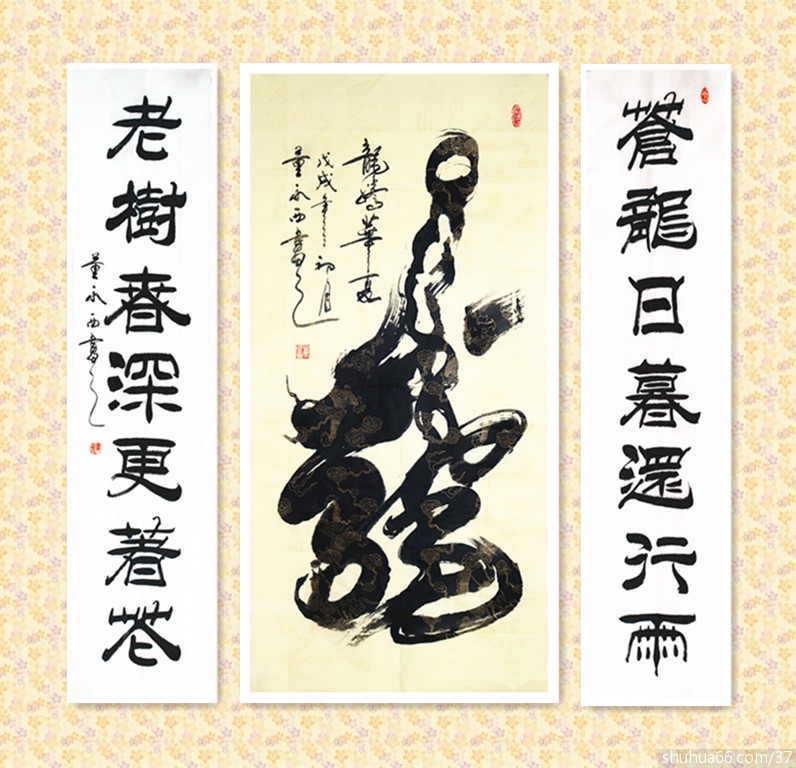 蒼龍日暮還行雨
龍
龍華夏
戊戌年之初月
董永西書之
老樹春深更著花
董永西書之
shuhua66.com/37